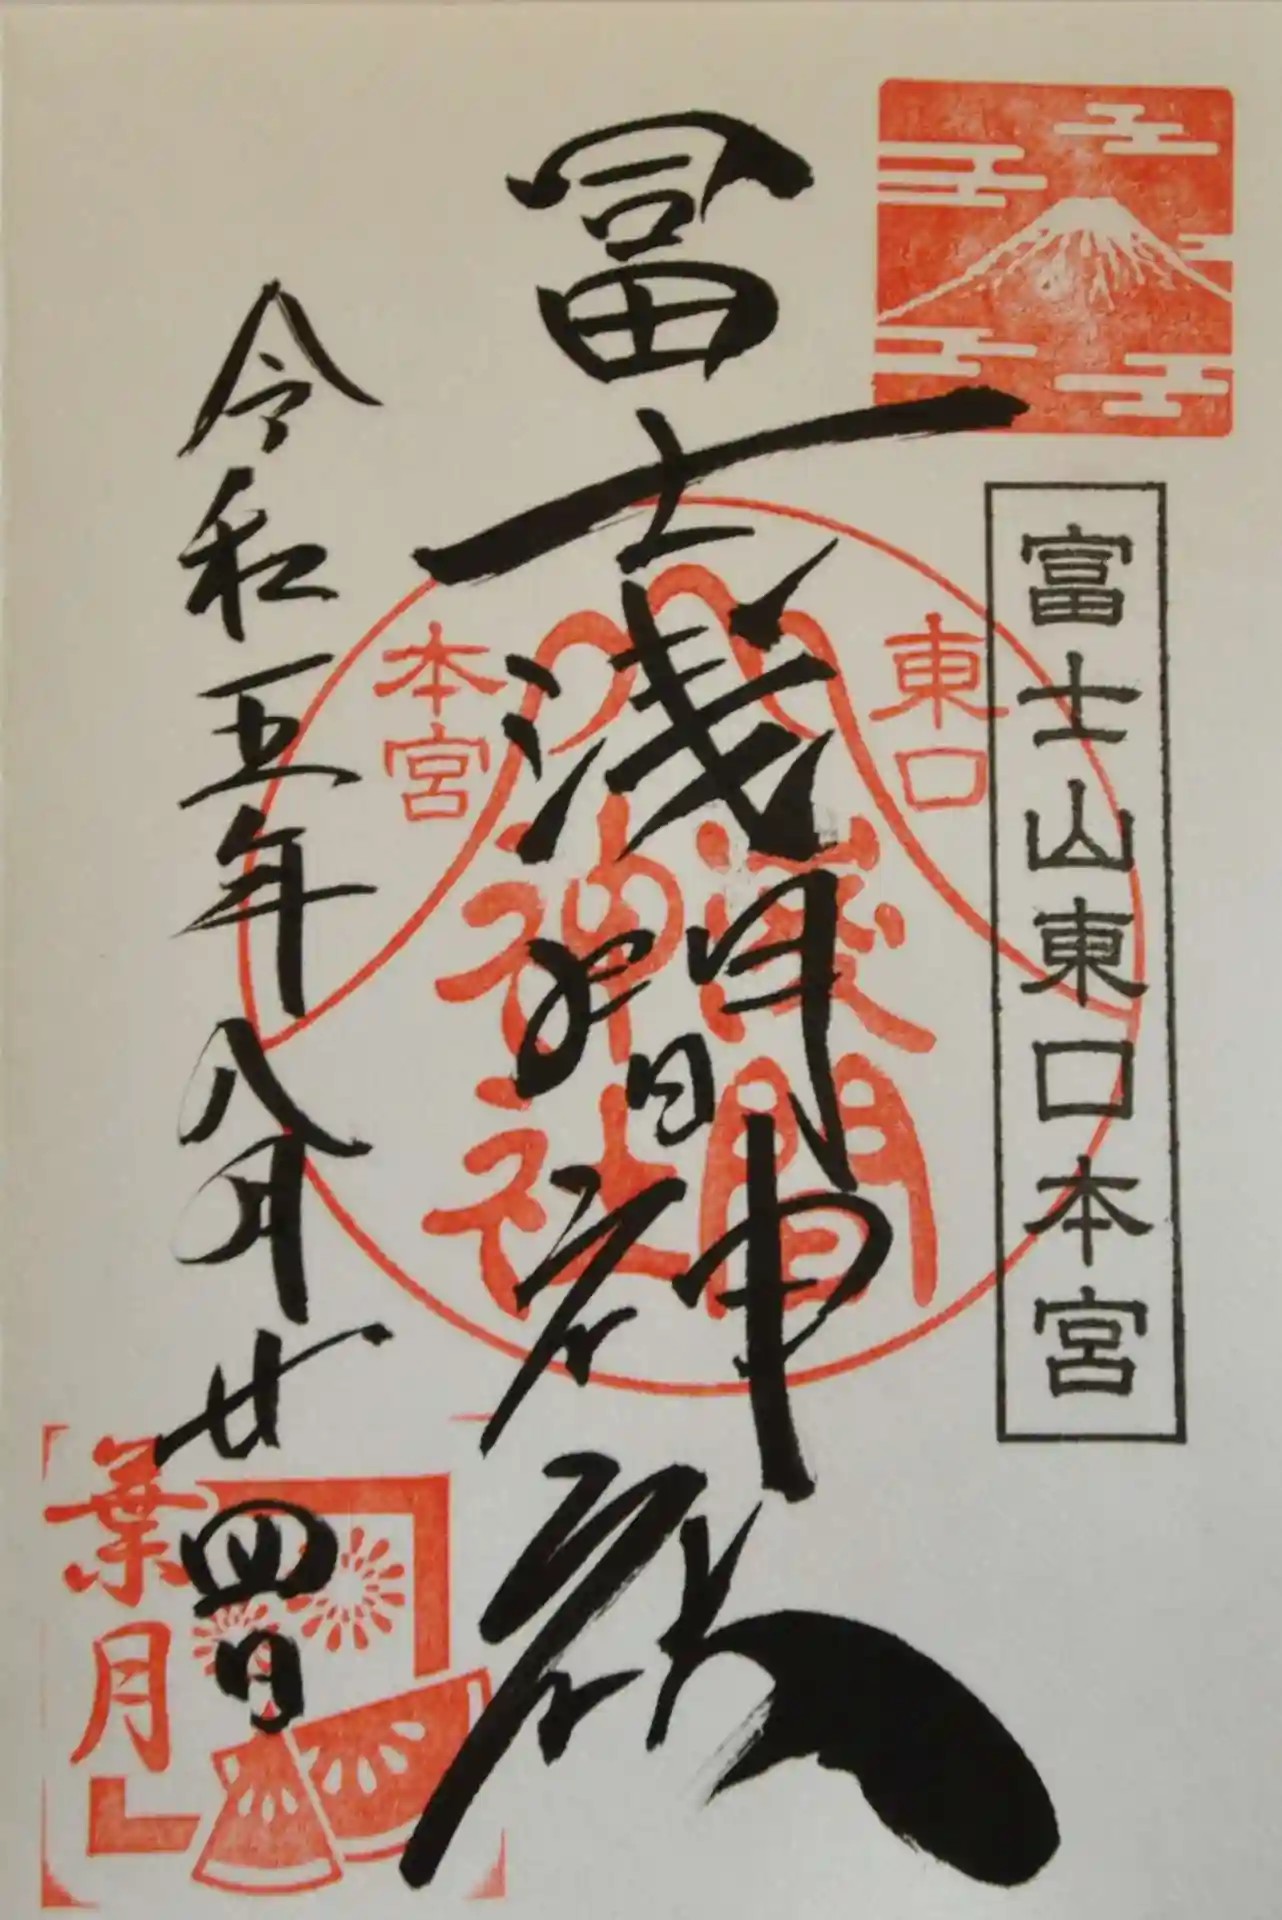 富士山東口本宮
冨士浅間神社
令和五年八月廿四日
東口
本宮
浅間
神社
葉月